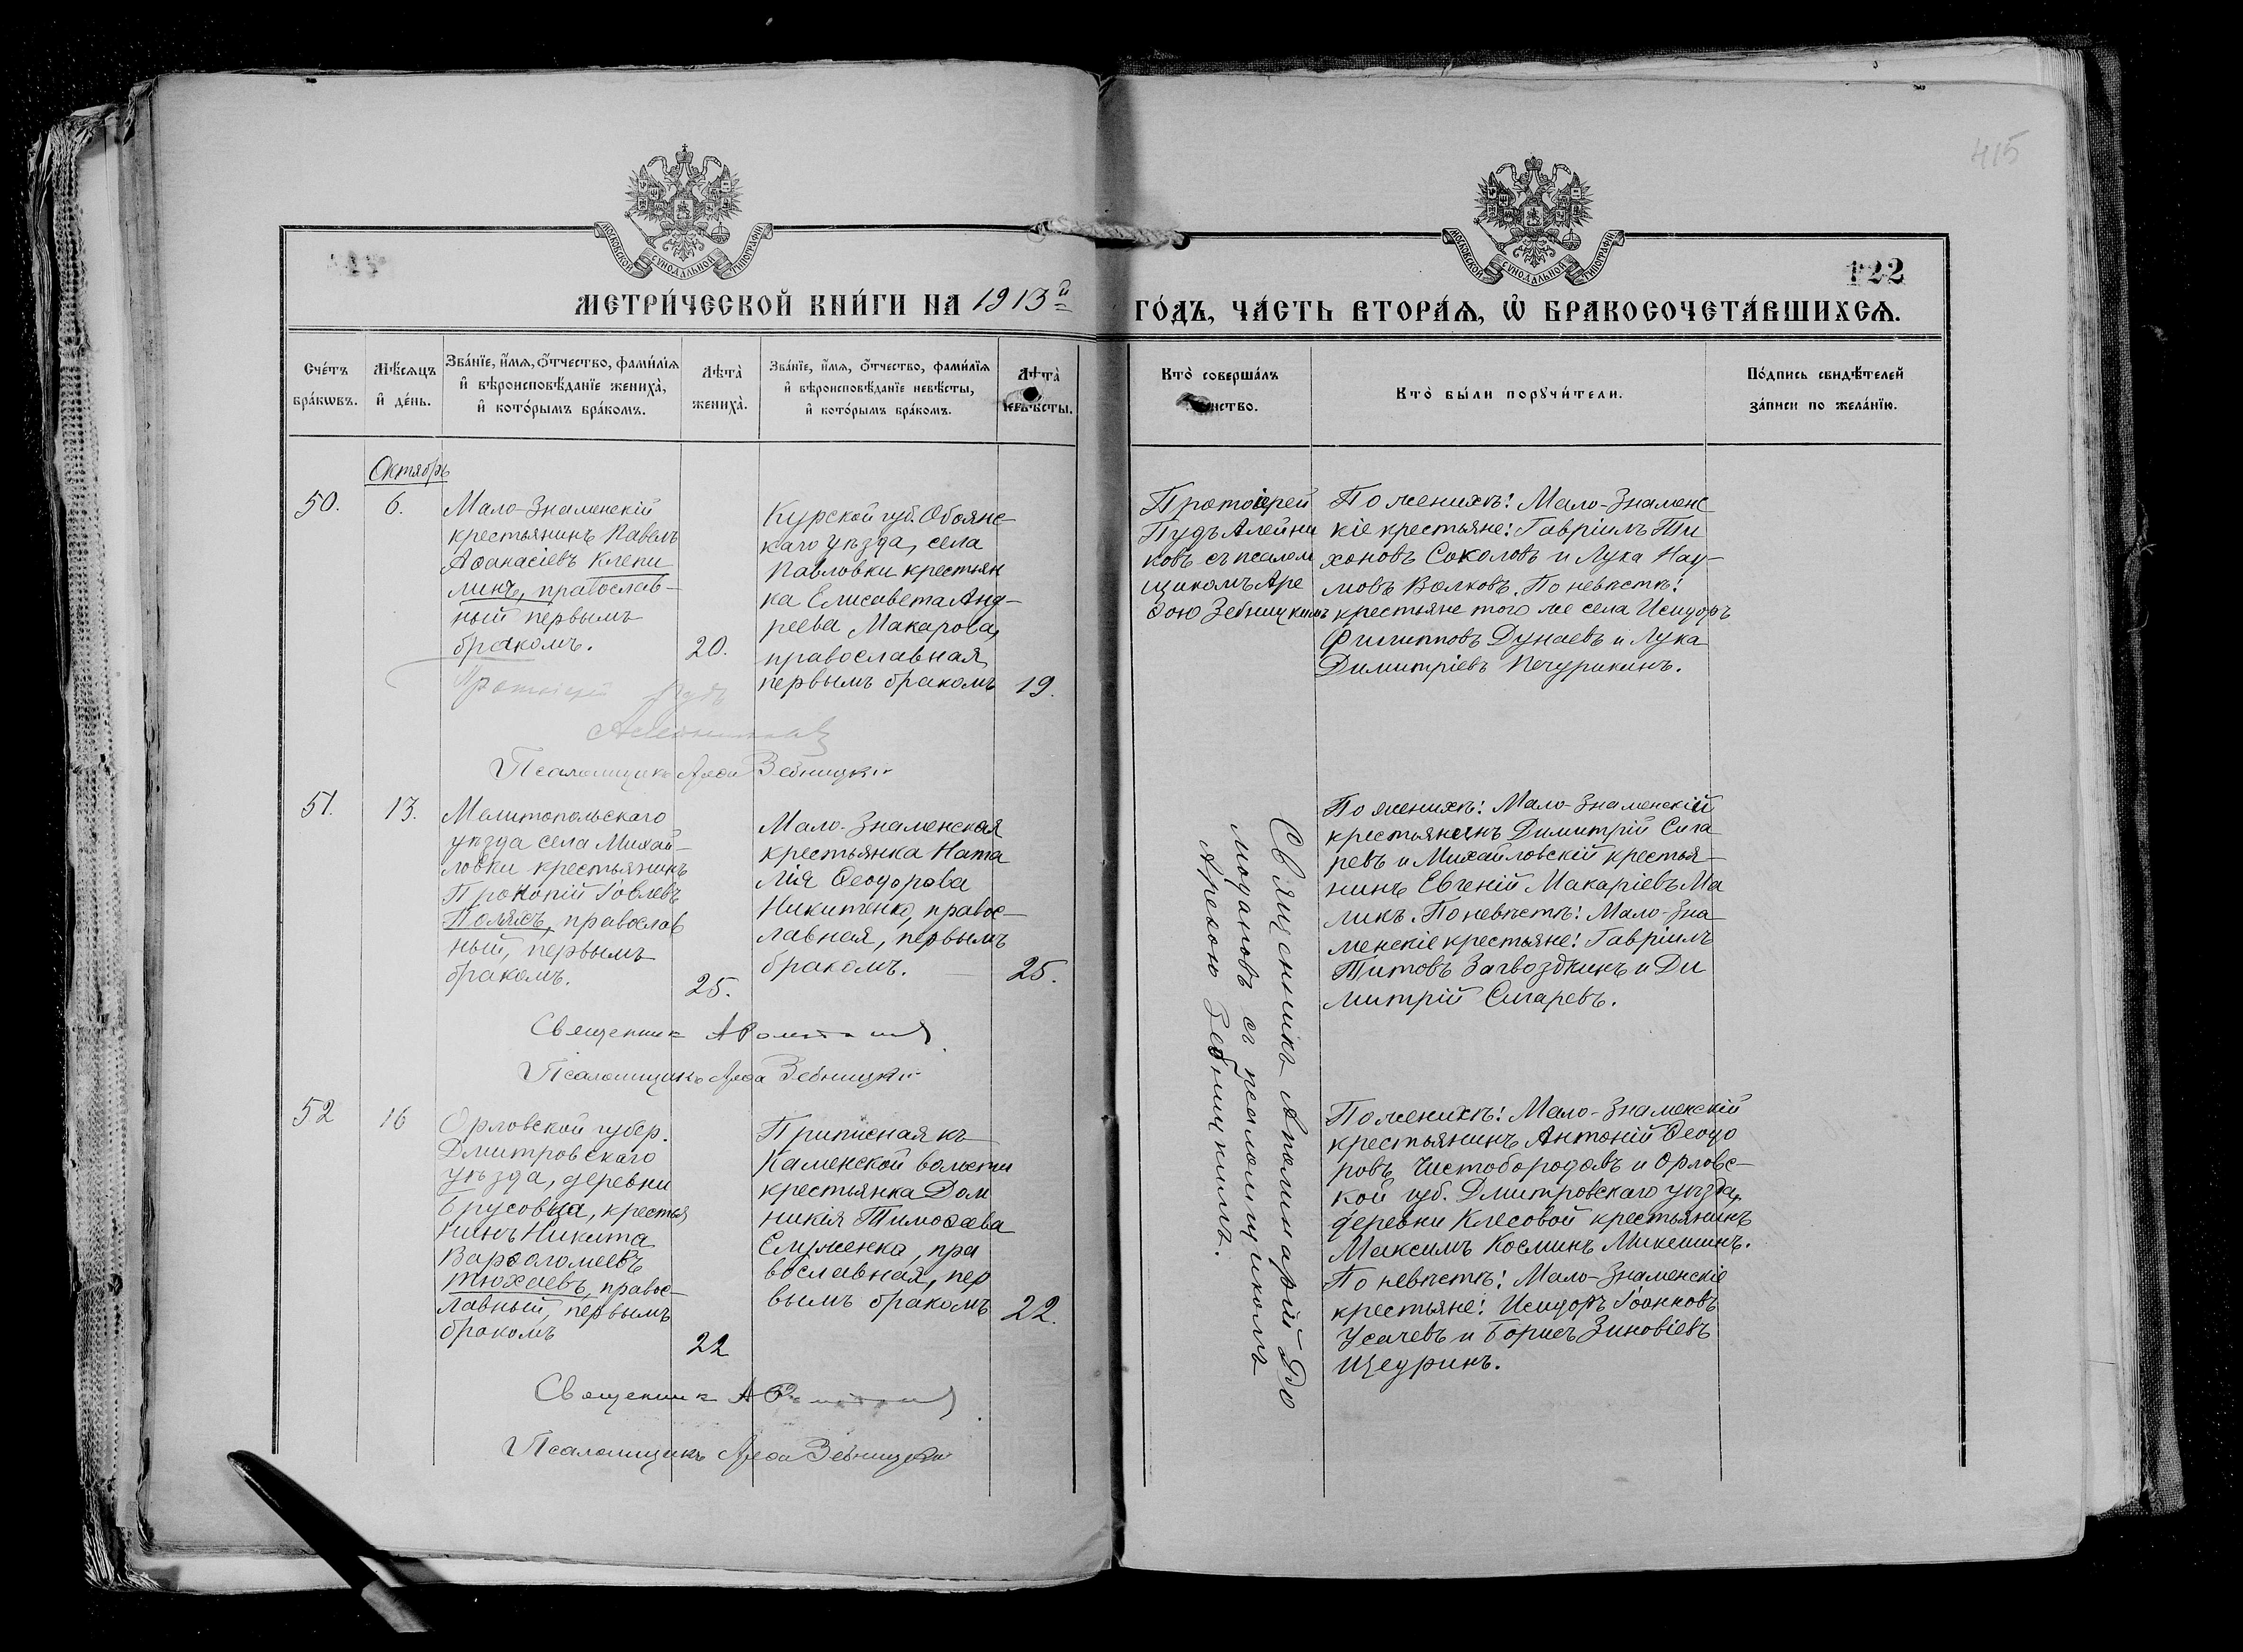 415
МОСКОВСКОЙ СѴНОДАЛЬНОЙ ТИПОГРАФІИ
МОСКОВСКОЙ СѴНОДАЛЬНОЙ ТИПОГРАФІИ
122
МЕТРИ́ЧЕСКОЙ КНИ́ГИ НА 1913й
ГО́ДЪ, ЧА́СТЬ ВТОРА́Ѧ, Ѡ҆ БРАКОСОЧЕТА́ВШИХСѦ.
Сче́тъ
бра́кѡвъ.
Мѣ́сяцъ
и҆ де́нь.
Зва́нїе, и҆́мѧ, ѻ҆́тчество, фами́лїѧ
и҆ вѣроисповѣ́данїе жениха̀,
и҆ кото́рымъ бра́комъ.
Лѣта̀
жениха̀.
Зва́нїе, и҆́мѧ, ѻ҆́тчество, фами́лїѧ
и҆ вѣроисповѣ́данїе невѣ́сты,
и҆ кото́рымъ бра́комъ.
Лѣта̀
невѣ́сты.
Кто̀ соверша́лъ
Кто̀ бы́ли порꙋчи́тели.
По́дпись свидѣ́телей
за́писи по жела́нїю.
Октябрь
50.
6.
Мало-Знаменскій
крестьянинъ Павелъ
Аѳанасіевъ Клепи
линъ, православ-
ный первымъ
бракомъ.
20.
Курской губ. Обоянс-
каго уѣзда, села
Павловки крестьян
ка Елисавета Анд-
реева Макарова,
православная
первымъ бракомъ
19.
Протоіерей
Пудъ Алейни
ковъ съ псалом
щикомъ Аре
ѳою Зебницкимъ
По женихѣ: Мало-Знаменс
кіе крестьяне: Гавріилъ Ти
хоновъ Соколовъ и Лука Нау-
мовъ Волковъ. По невѣстѣ:
крестьяне того же села Исидоръ
Филипповъ Дунаевъ и Лука
Димитріевъ Печурикинъ.
Протоіерей Пудъ
Псаломщикъ Ареѳа Зебницкій
51.
13.
Мелитопольскаго
уѣзда села Михай-
ловки крестьянинъ
Прокопій Іовлевъ
Полякъ, православ
ный, первымъ
бракомъ.
25.
Мало-Знаменская
крестьянка Ната
лія Ѳеодорова
Никитенко, правос-
лавная, первымъ
бракомъ.
25.
Священникъ Аполинарій До
модановъ съ псаломщикомъ
Ареѳою Зебницкимъ.
По женихѣ: Мало-Знаменскій
крестьянинъ Димитрій Сига
ревъ и Михайловскій крестья-
нинъ Евгеній Макаріевъ Ма
ликъ. По невѣстѣ: Мало-Зна-
менскіе крестьяне: Гавріилъ
Титовъ Загвоздкинъ и Ди
митрій Сигаревъ.
Священникъ
Псаломщикъ Ареѳа Зебницкій
52
16
Орловской губер.
Дмитровскаго
уѣзда, деревни
Брусовца, крестья
нинъ Никита
Варѳоломеевъ
Тюхаевъ, правос-
лавный, первымъ
бракомъ
22
Приписная къ
Каменской волости
крестьянка Дом
никія Тимоѳеева
Служенко, пра
вославная, пер
вымъ бракомъ
22.
По женихѣ: Мало-Знаменскій
крестьянинъ Антоній Ѳеодо
ровъ Чистобородовъ и Орловс-
кой губ. Дмитровскаго уѣзда,
деревни Клесовой крестьянинъ
Максимъ Косминъ Микешинъ.
По невѣстѣ: Мало-Знаменскіе
крестьяне: Исидоръ Іоанновъ
Усачевъ и Борисъ Зиновіевъ
Щедринъ.
Священникъ
Псаломщикъ Ареѳа Зебницкій